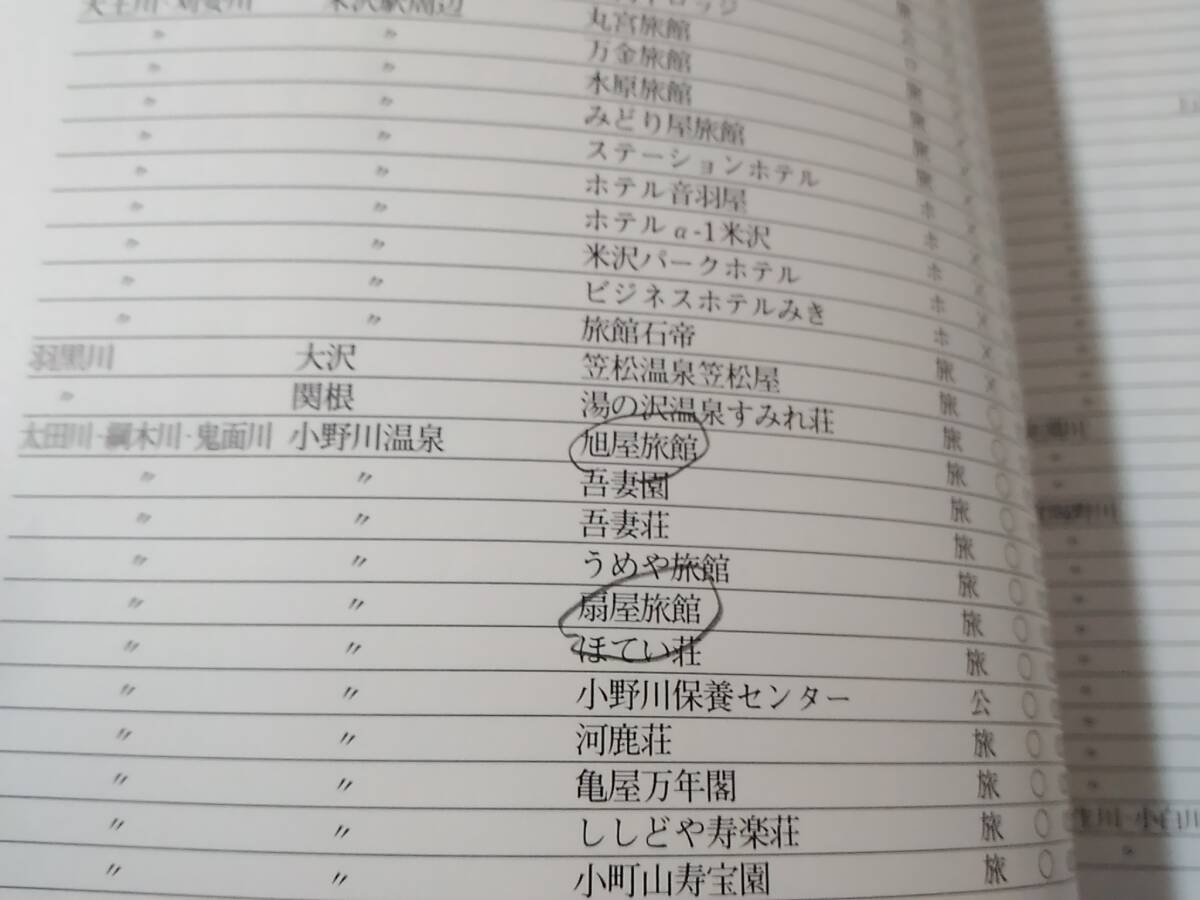 米沢駅周辺
〃 〃 丸宮旅館 旅
〃 〃 万金旅館
〃 〃 水原旅館 旅
〃 〃 みどり屋旅館 旅
〃 〃 ステーションホテル
〃 〃 ホテル音羽屋 ホ
〃 〃 ホテルα-1米沢 ホ
〃 〃 米沢パークホテル ホ ×
〃 〃 ビジネスホテルみき ホ ×
〃 〃 旅館石帝 旅 ×
羽黒川 大沢 笠松温泉笠松屋 旅 ○
〃 関根 湯の沢温泉すみれ荘 旅 ○
太田川·綱木川·鬼面川 小野川温泉 旭屋旅館 旅 ○
〃 〃 吾妻園 旅 ○
〃 〃 吾妻荘 旅 ○
〃 〃 うめや旅館 旅 ○
〃 〃 扇屋旅館 旅 ○
〃 〃 ほてい荘 旅 ○
〃 〃 小野川保養センター 公 ○
〃 〃 河鹿荘 旅 ○
〃 〃 亀屋万年閣 旅 ○
〃 〃 ししどや寿楽荘 旅 ○
〃 〃 小町山寿宝園 旅 ○